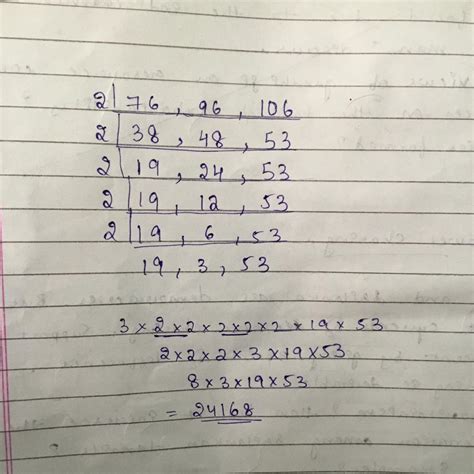 2 | 76 , 96 , 106
2 | 38 , 48 , 53
2 | 19 , 24 , 53
2 | 19 , 12 , 53
2 | 19 , 6 , 53
19 , 3 , 53
3 × 2 × 2 × 2 × 2 × 2 × 19 × 53
2 × 2 × 2 × 3 × 19 × 53
8 × 3 × 19 × 53
= 24168